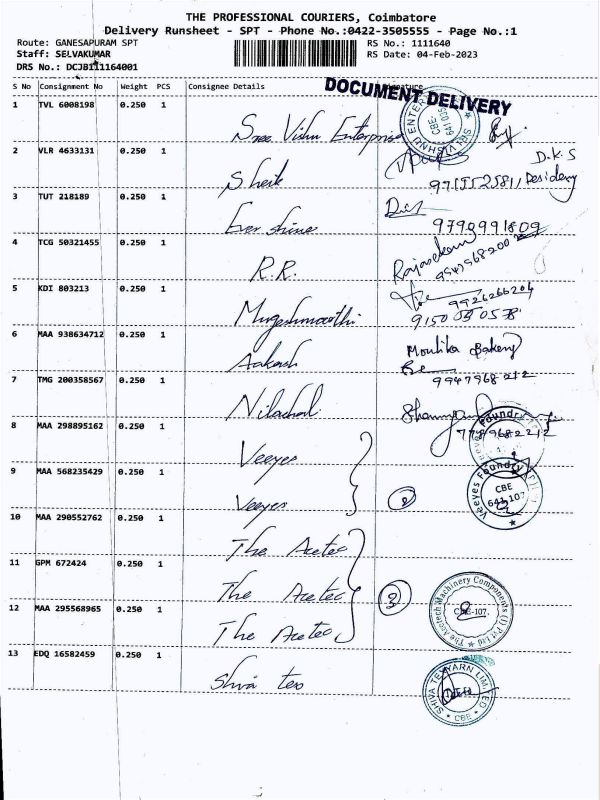 THE PROFESSIONAL COURIERS, Coimbatore
Delivery Runsheet - SPT - Phone No.:0422-3505555 - Page No.:1
Route: GANESAPURAM SPT
RS No.: 1111640
Staff: SELVAKUMAR
RS Date: 04-Feb-2023
DRS No.: DCJB111164001
S No Consignment No Weight PCS Consignee Details
DOCUMENT DELIVERY
1 TVL 6008198 0.250 1 Sree Vishnu Enterprises
2 VLR 4633131 0.250 1 Sheik
D.K.S
3 TUT 218189 0.250 1 Ever shine
9790991809
4 TCG 50321455 0.250 1 R.R.
Rajasekar
5 KDI 803213 0.250 1 Mugeshmoorthi
9926266204
6 MAA 938634712 0.250 1 Aakash
Moulika Bakery
7 TMG 200358567 0.250 1 Nilachal
8 MAA 298895162 0.250 1 Veeyes
Veeyes Foundry
9 MAA 568235429 0.250 1 Veeyes
2
CBE
641 107
10 MAA 290552762 0.250 1 The Acetec
11 GPM 672424 0.250 1 The Acetec
3
The Acctech Machinery Components (I) Pvt Ltd
12 MAA 295568965 0.250 1 The Acetec
13 EDQ 16582459 0.250 1 Shiva tex
SHIVA TEXYARN LIMITED
CBE